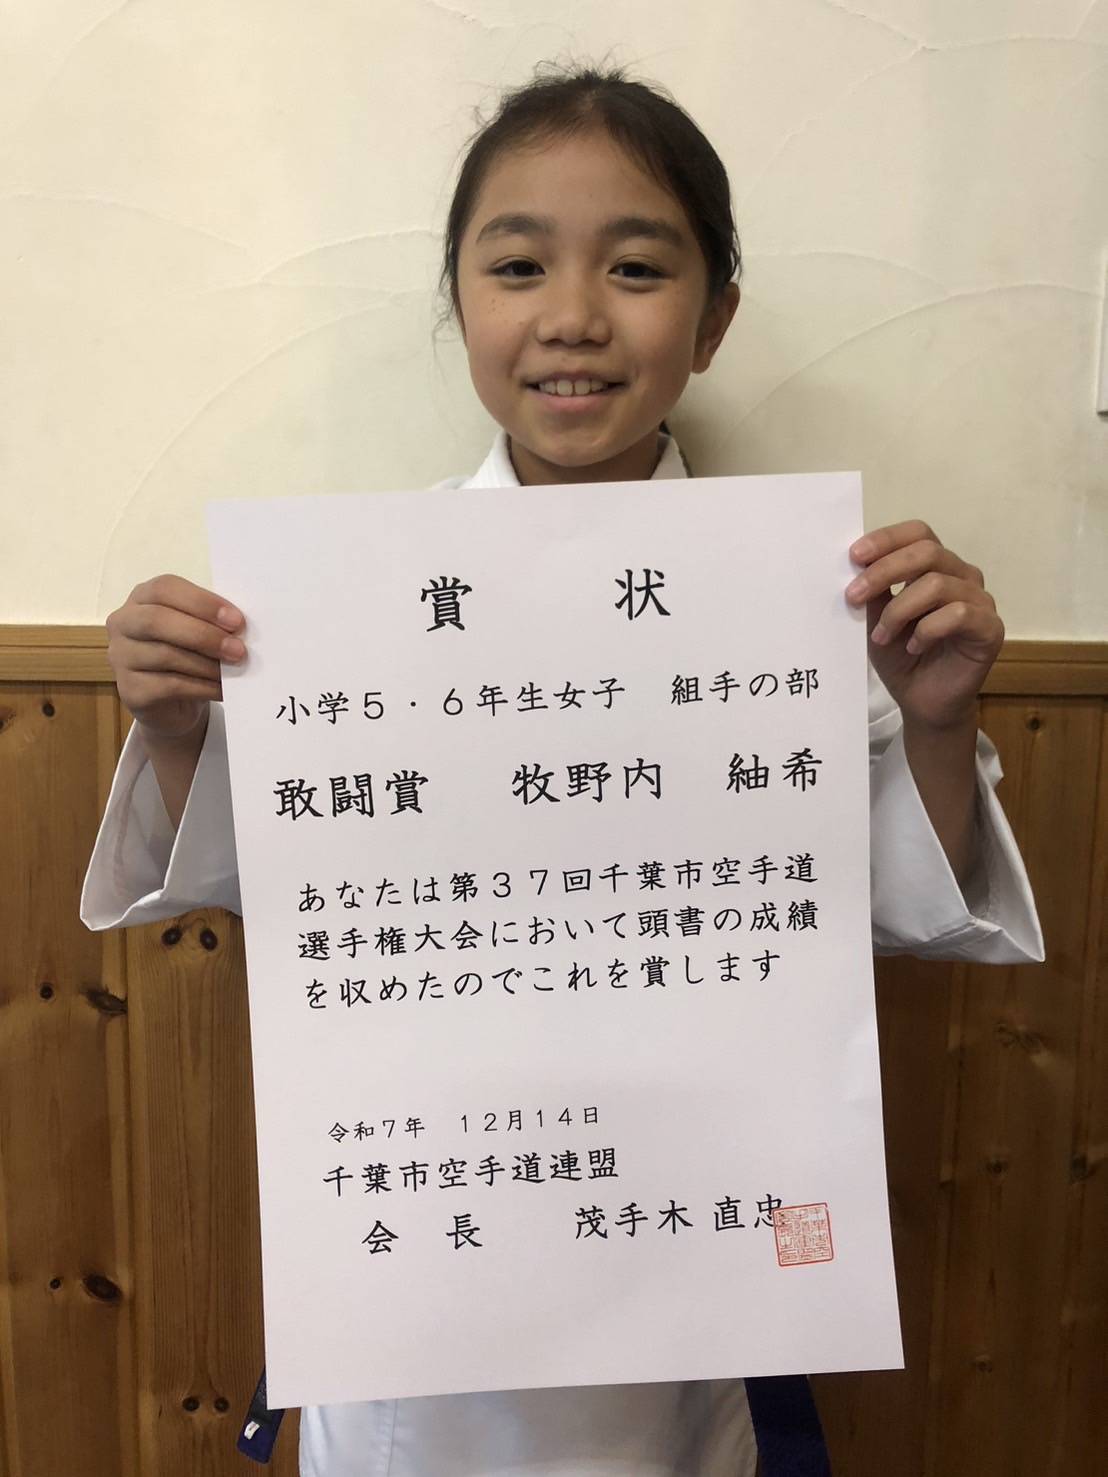 賞 状
小学５・６年生女子 組手の部
敢闘賞 牧野内 紬希
あなたは第３７回千葉市空手道
選手権大会において頭書の成績
を収めたのでこれを賞します
令和７年 １２月１４日
千葉市空手道連盟
会 長 茂手木 直忠